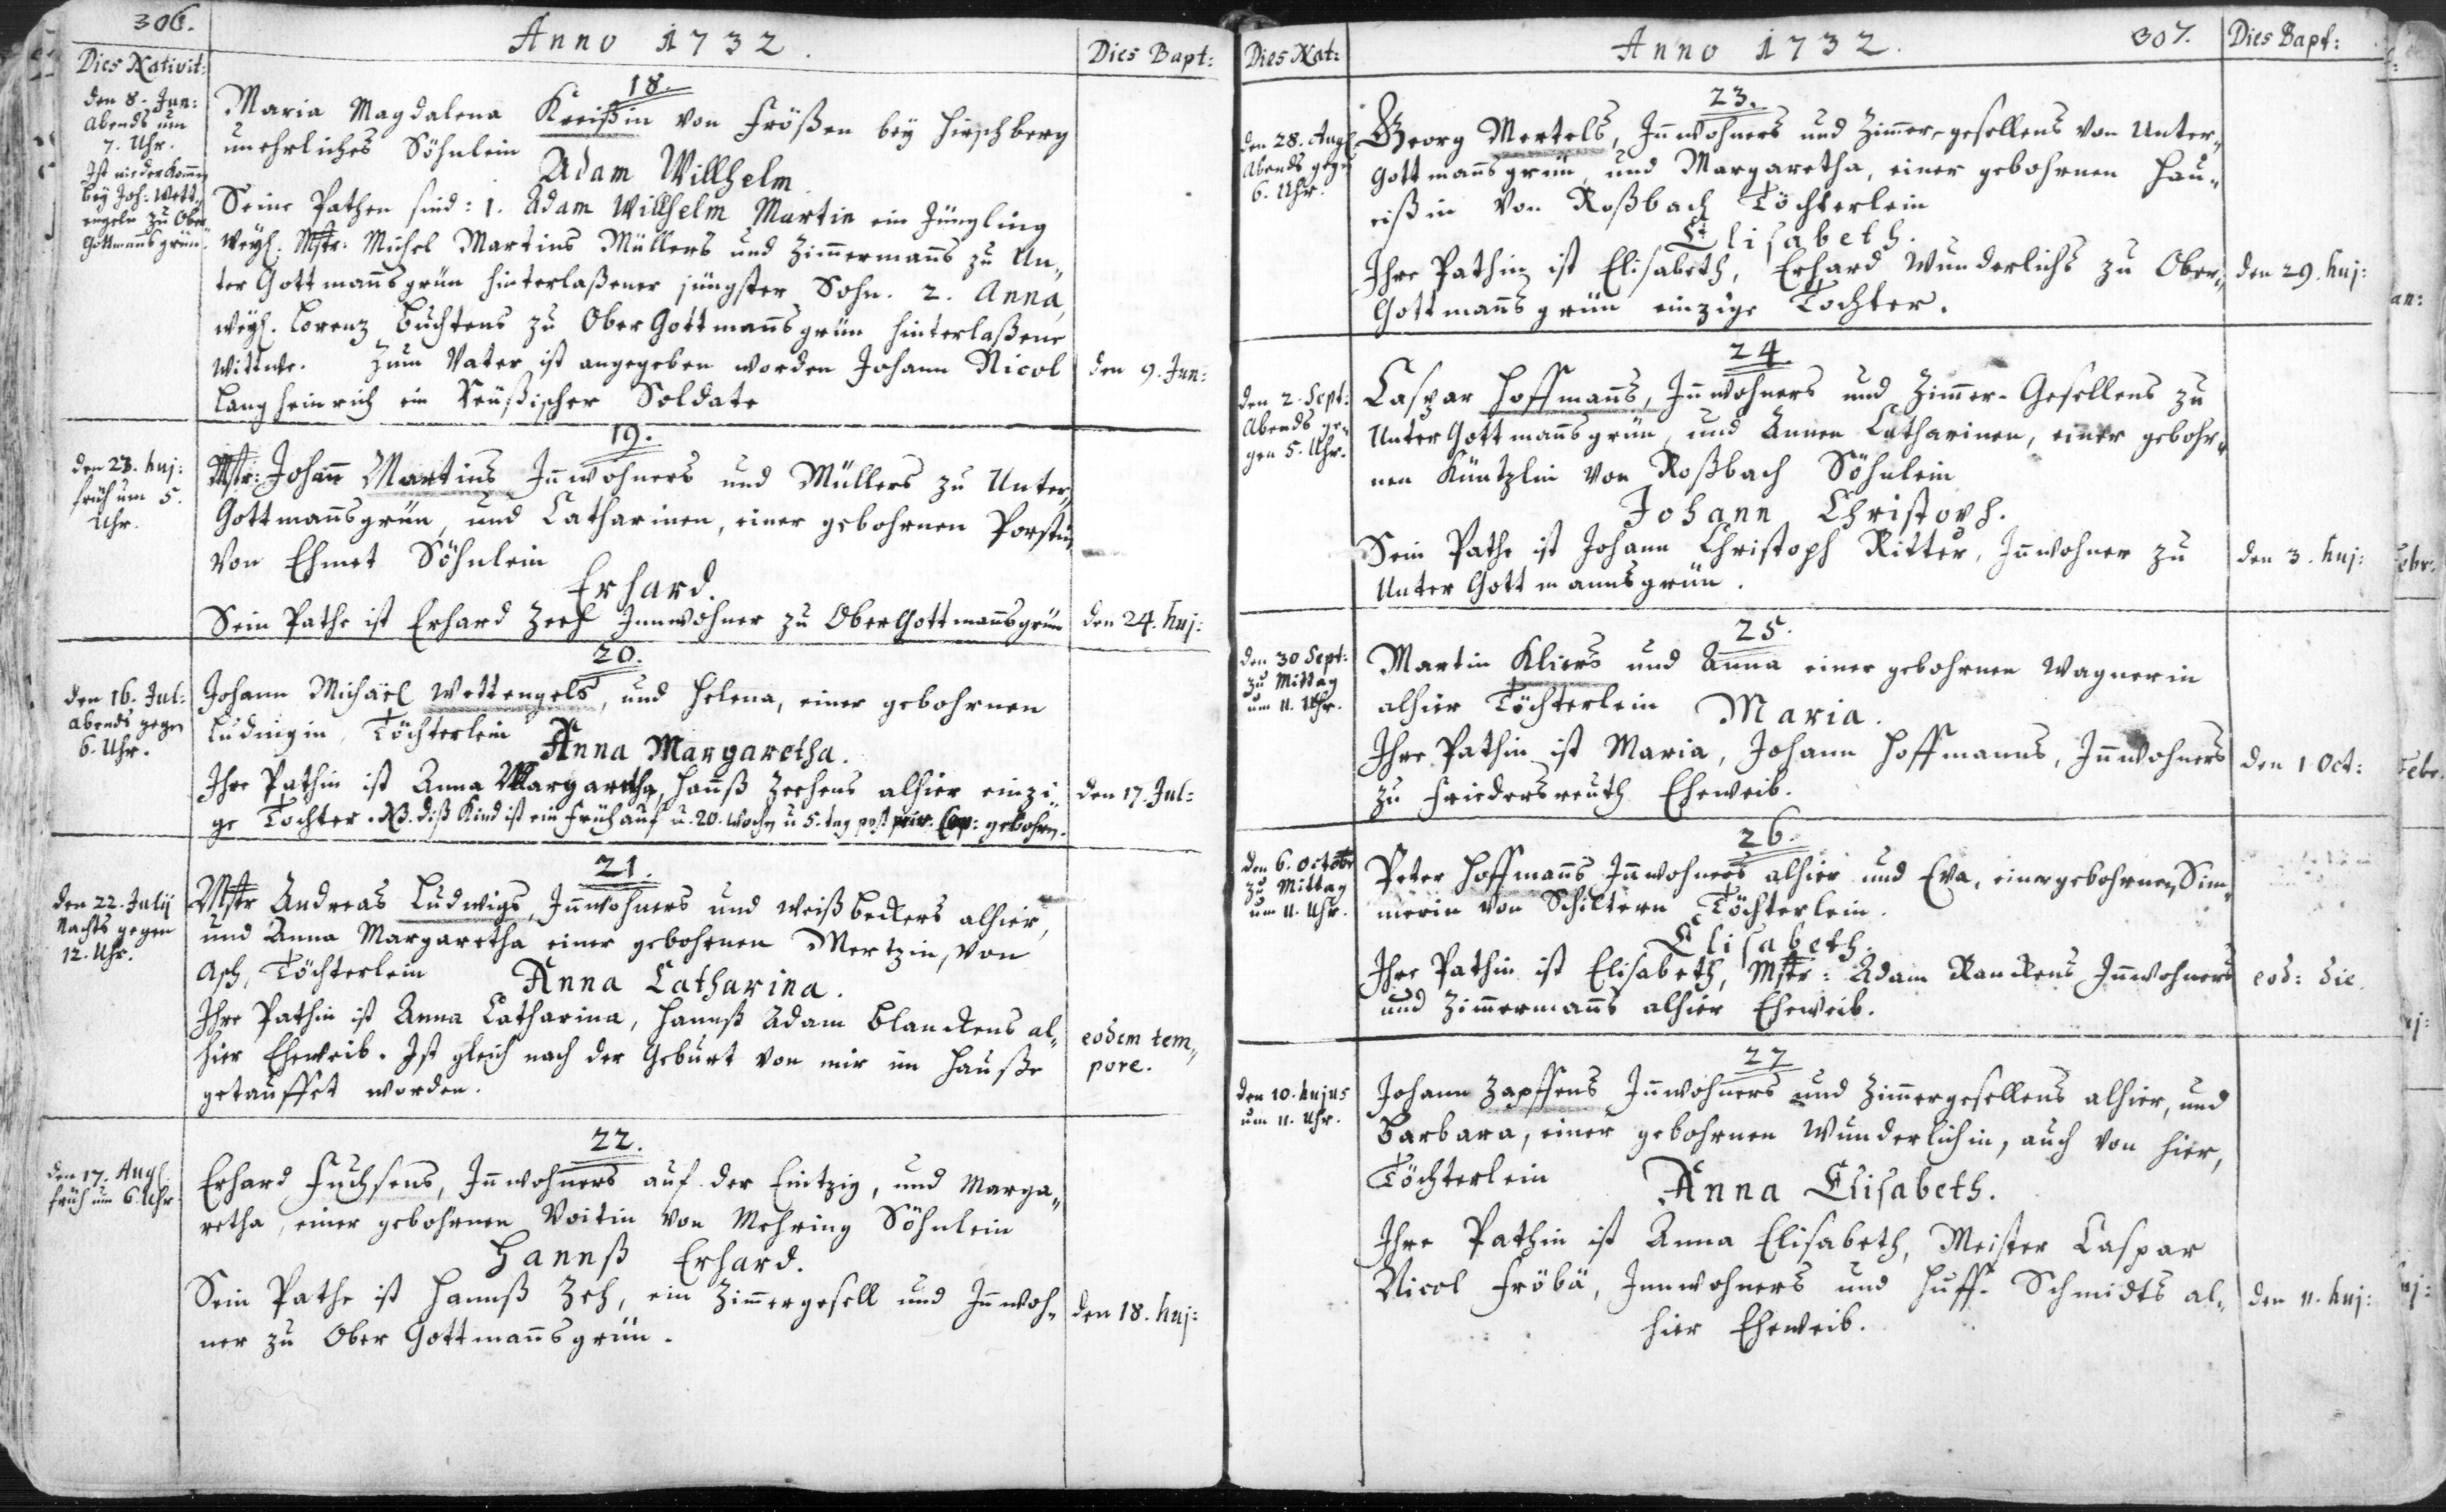 306.
Anno 1732.
Dies Nativit:
Dies Bapt:
18.
den 8. Jun:
abends um
7. Uhr.
Ist niederkomen
bey Joh: Wett„
engeln zu Ober
Gottmañsgrün.
Maria Magdalena Kreißin von Frößen bey Hirschberg
unehrliches Söhnlein
Adam Willhelm
Seine Pathen sind: 1. Adam Willhelm Martin ein Jüngling
weyl. Mstr: Michel Martins Müllers und Zimmermañs zu Un„
ter Gottmañsgrün hinterlaßener jüngster Sohn. 2. Anna,
weyl. Lorenz Buchtens zu Ober Gottmañsgrün hinterlaßene
Wittwe. Zum Vater ist angegeben worden Johann Nicol
Langheinrich ein Reußischer Soldate
den 9. Jun:
19.
den 23. huj:
früh um 5.
Uhr.
Mstr: Johañ Martins Iñwohners und Müllers zu Unter„
Gottmañsgrün, und Catharinen, einer gebohrnen Porstin
von Ehmet Söhnlein
Erhard.
Sein Pathe ist Erhard Zeeh Innwohner zu OberGottmañsgrün
den 24. huj:
20.
den 16. Jul:
abends gegen
6. Uhr.
Johann Michaël Wettengels, und Helena, einer gebohrnen
Ludwigin, Töchterlein
Anna Margaretha.
Ihre Pathin ist Anna Margaretha, Hañß Zeehens alhier einzi„
ge Tochter. NB. diß Kind ist ein früh auf u. 20. Wochen u 5. tag post Cop: gebohrn.
den 17. Jul:
21.
den 22. Julij
Nachts gegen
12. Uhr.
Mstr Andreas Ludwigs, Iñwohners und Weißbeckers alhier,
und Anna Margaretha einer gebohrnen Mertzin, von
Asch, Töchterlein
Anna Catharina.
Ihre Pathin ist Anna Catharina, Hannß Adam Blanckens al„
hier Eheweib. Ist gleich nach der Geburt von mir im Hauße
getauffet worden.
eodem tem„
pore.
22.
den 17. Aug.
früh um 6. Uhr
Erhard Fuchsens, Iñwohners auf der Eintzig, und Marga„
retha, einer gebohrnen Voitin von Mehring Söhnlein
Hannß Erhard.
Sein Pathe ist Hannß Zeh, ein Zimmergesell und Iñwoh„
ner zu Ober Gottmañsgrün.
den 18. huj:
Dies Nat:
Anno 1732.
307.
Dies Bapt:
23.
den 28. Aug.
Abends gegen
6. Uhr.
Georg Mertels, Iñwohners und Zimmer-gesellens von Unter„
Gottmañsgrün, und Margaretha, einer gebohrnen Hau„
eißin von Roßbach Töchterlein
Elisabeth.
Ihre Pathin ist Elisabeth, Erhard Wunderlichs zu Ober„
Gottmañsgrün einzige Tochter.
den 29. huj:
24.
den 2. Sept:
Abends ge„
gen 5. Uhr.
Caspar Hoffmañs, Iñwohners und Zimmer-Gesellens zu
Unter Gottmañsgrün, und Annen Catharinen, einer gebohr„
nen Küntzlin von Roßbach Söhnlein
Johann Christoph.
Sein Pathe ist Johann Christoph Ritter, Iñwohner zu
Unter Gottmannsgrün.
den 3. huj:
25.
den 30 Sept:
zu Mittag
um 11. Uhr.
Martin Kliers und Anna einer gebohrnen Wagnerin
alhier Töchterlein
Maria.
Ihre Pathin ist Maria, Johann Hoffmanns, Iñwohners
zu Friedersreuth Eheweib.
den 1 Oct:
26.
den 6. Octobr
zu Mittag
um 11. Uhr.
Peter Hoffmañs Iñwohners alhier und Eva, einer gebohrnen Sim„
merin von Schiltern Töchterlein.
Elisabeth.
Ihre Pathin ist Elisabeth, Mstr: Adam Ranckens Iñwohners
und Zimmermañs alhier Eheweib.
eod: die.
27
den 10. hujus
um 11. Uhr.
Johann Zapffens Iñwohners und Zimmergesellens alhier, und
Barbara, einer gebohrnen Wunderlichin, auch von hier,
Töchterlein
Anna Elisabeth.
Ihre Pathin ist Anna Elisabeth, Meister Caspar
Nicol Fröbä, Innwohners und Huff-Schmidts al„
hier Eheweib.
den 11. huj: